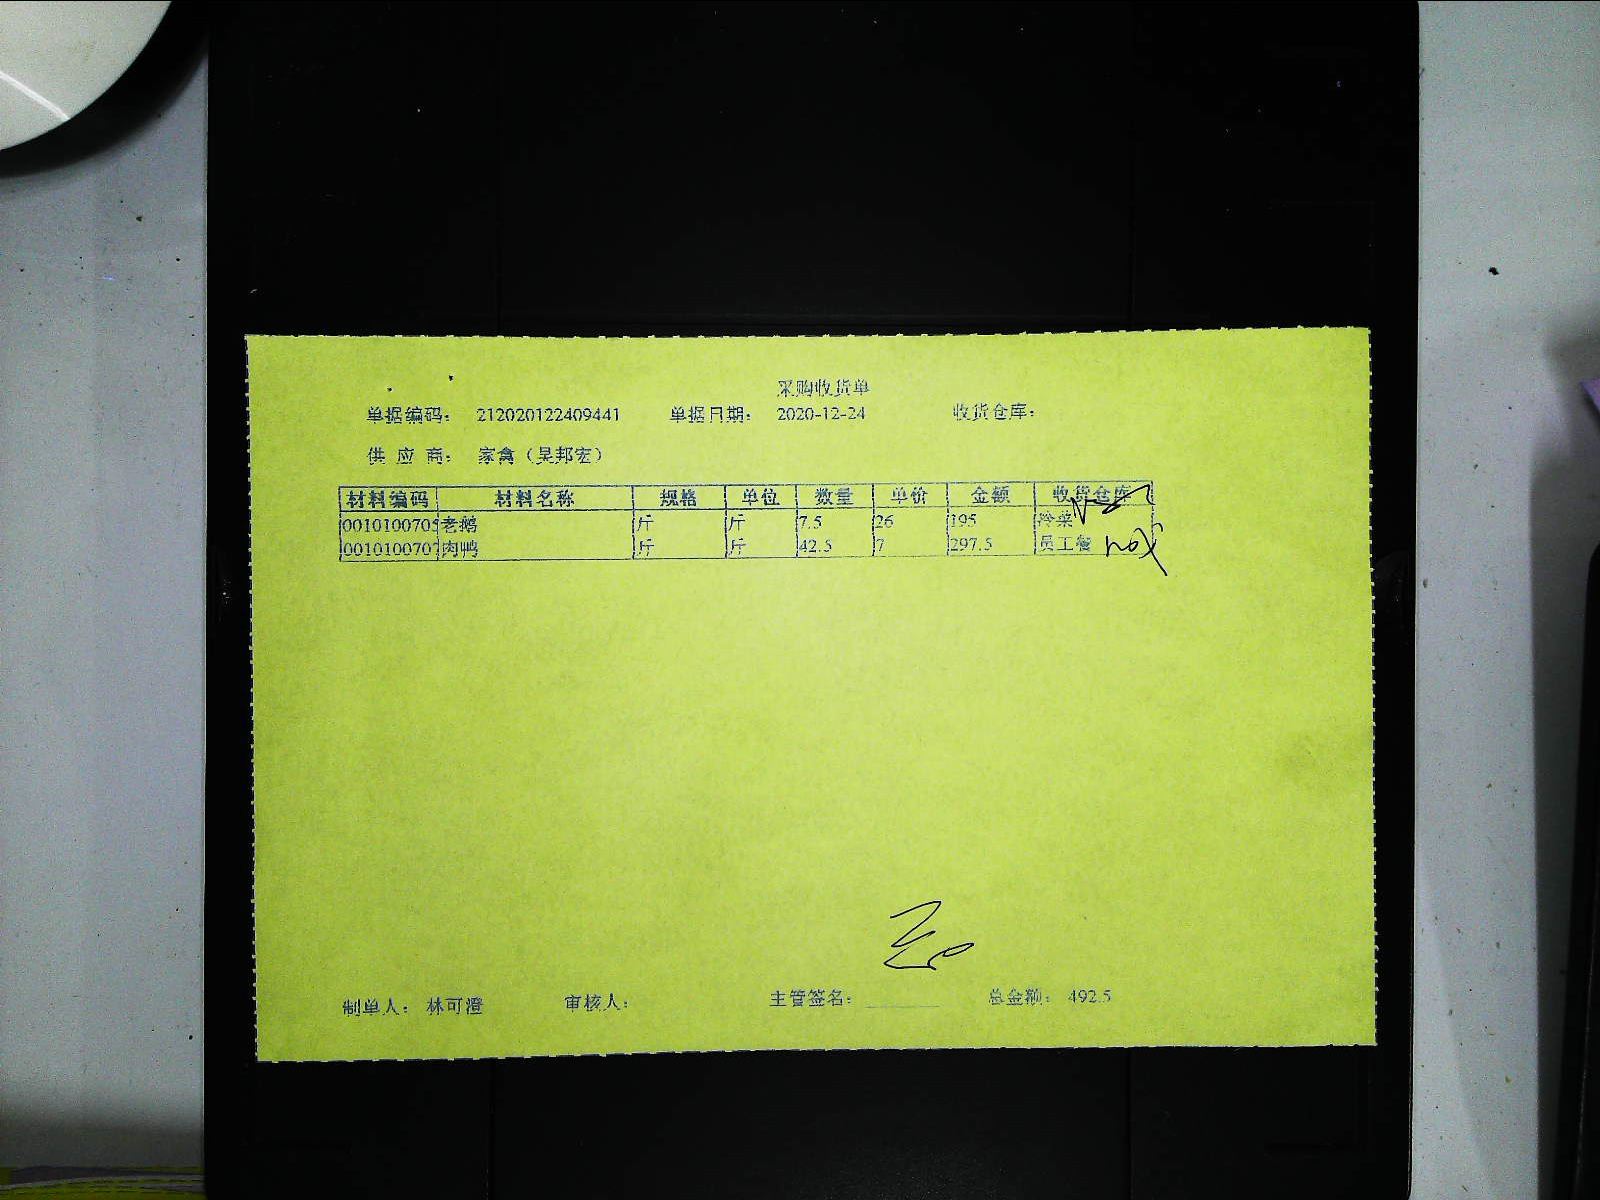 采购收货单
单据编码： 212020122409441 单据日期： 2020-12-24 收货仓库：
供 应 商： 家禽（吴邦宏）
材料编码 材料名称 规格 单位 数量 单价 金额 收货仓库
0010100705 老鹅 斤 斤 7.5 26 195 冷菜
0010100707 肉鸭 斤 斤 42.5 7 297.5 员工餐
制单人： 林可澄 审核人： 主管签名： 总金额： 492.5